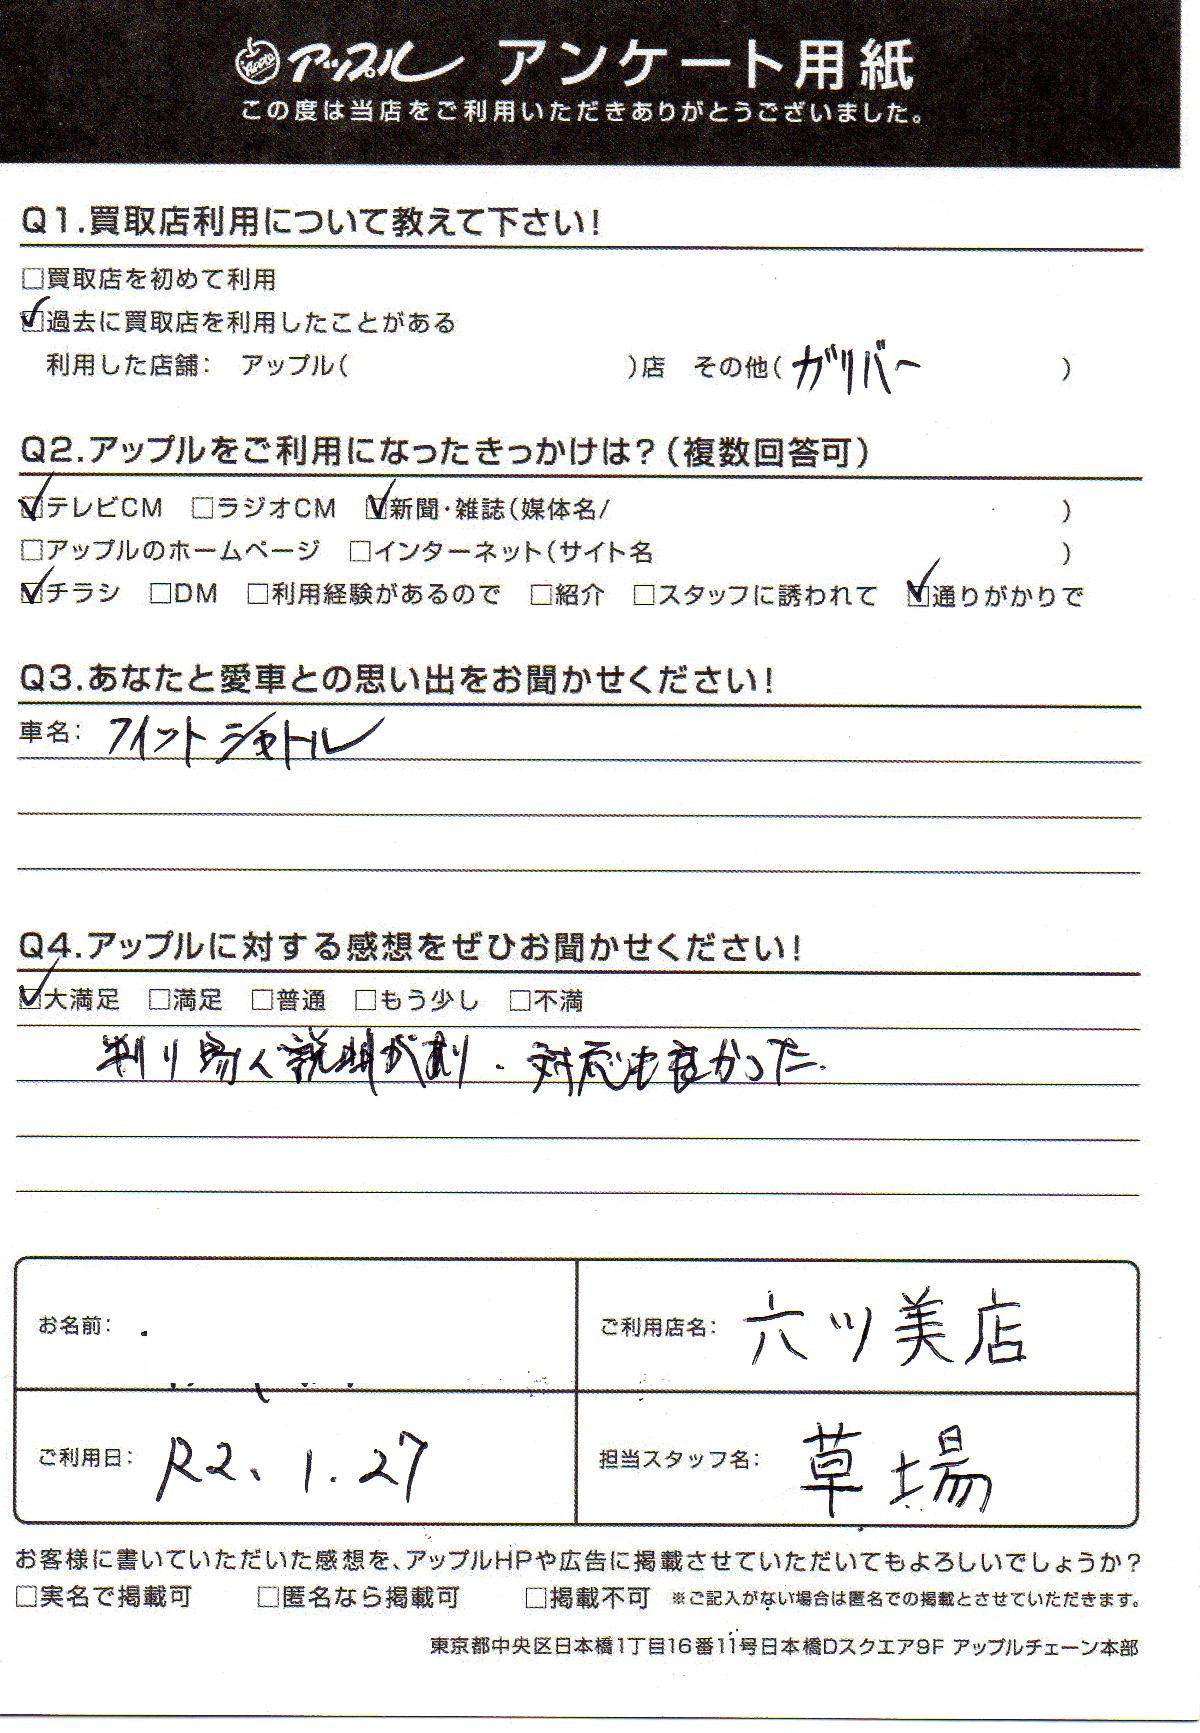 アップル アンケート用紙
この度は当店をご利用いただきありがとうございました。
Q1.買取店利用について教えて下さい!
□買取店を初めて利用
☑過去に買取店を利用したことがある
利用した店舗: アップル( )店 その他( ガリバー )
Q2.アップルをご利用になったきっかけは?(複数回答可)
☑テレビCM □ラジオCM ☑新聞・雑誌(媒体名/ )
□アップルのホームページ □インターネット(サイト名 )
☑チラシ □DM □利用経験があるので □紹介 □スタッフに誘われて ☑通りがかりで
Q3.あなたと愛車との思い出をお聞かせください!
車名: フィットシャトル
Q4.アップルに対する感想をぜひお聞かせください!
☑大満足 □満足 □普通 □もう少し □不満
判り易く説明があり、対応も良かった.
お名前: ご利用店名: 六ツ美店
ご利用日: R2、1.27 担当スタッフ名: 草場
お客様に書いていただいた感想を、アップルHPや広告に掲載させていただいてもよろしいでしょうか?
□実名で掲載可 □匿名なら掲載可 □掲載不可 ※ご記入がない場合は匿名での掲載とさせていただきます。
東京都中央区日本橋1丁目16番11号日本橋Dスクエア9F アップルチェーン本部